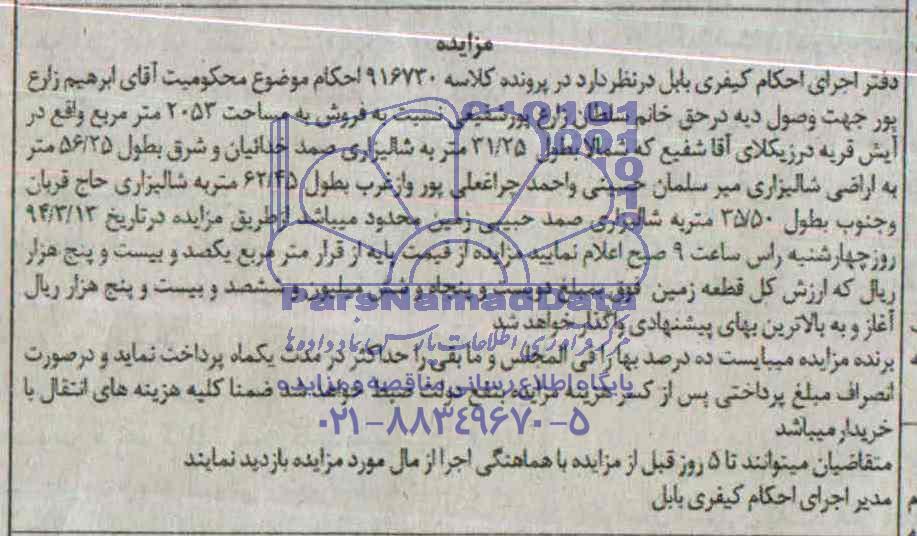 مزایده
دفتر اجرای احکام کیفری بابل درنظر دارد در پرونده کلاسه ۹۱۶۷۳۰ احکام موضوع محکومیت آقای ابرهیم زارع
پور جهت وصول دیه درحق خانم سلطان زارع پورشفیعی نسبت به فروش به مساحت ۲۰۵۳ متر مربع واقع در
آیش قریه درزیکلای آقا شفیع که شمالا بطول ۳۱/۲۵ متر به شالیزاری صمد خدائیان و شرق بطول ۵۶/۲۵ متر
به اراضی شالیزاری میر سلمان حسینی واحمد چراغعلی پور وازغرب بطول ۶۲/۴۵ متربه شالیزاری حاج قربان
وجنوب بطول ۳۵/۵۰ متربه شالیزاری صمد حبیبی زمین محدود میباشد ازطریق مزایده درتاریخ ۹۴/۳/۱۳
روزچهارشنبه راس ساعت ۹ صبح اعلام نماییه مزایده از قیمت پایه از قرار متر مربع یکصد و بیست و پنج هزار
ریال که ارزش کل قطعه زمین فوق بمبلغ دویست و پنجاه و شش میلیون و ششصد و بیست و پنج هزار ریال
آغاز و به بالاترین بهای پیشنهادی واگذار خواهد شد
برنده مزایده میبایست ده درصد بها را فی المجلس و ما بقی را حداکثر در مدت یکماه پرداخت نماید و درصورت
انصراف مبلغ پرداختی پس از کسر هزینه مزایده بنفع دولت ضبط خواهد شد ضمنا کلیه هزینه های انتقال با
خریدار میباشد
متقاضیان میتوانند تا ۵ روز قبل از مزایده با هماهنگی اجرا از مال مورد مزایده بازدید نمایند
مدیر اجرای احکام کیفری بابل
ParsNamadData
مرکز فرآوری اطلاعات پارس نماد داده ها
پایگاه اطلاع رسانی مناقصه و مزایده
۰۲۱-۸۸۳۴۹۶۷۰-۵